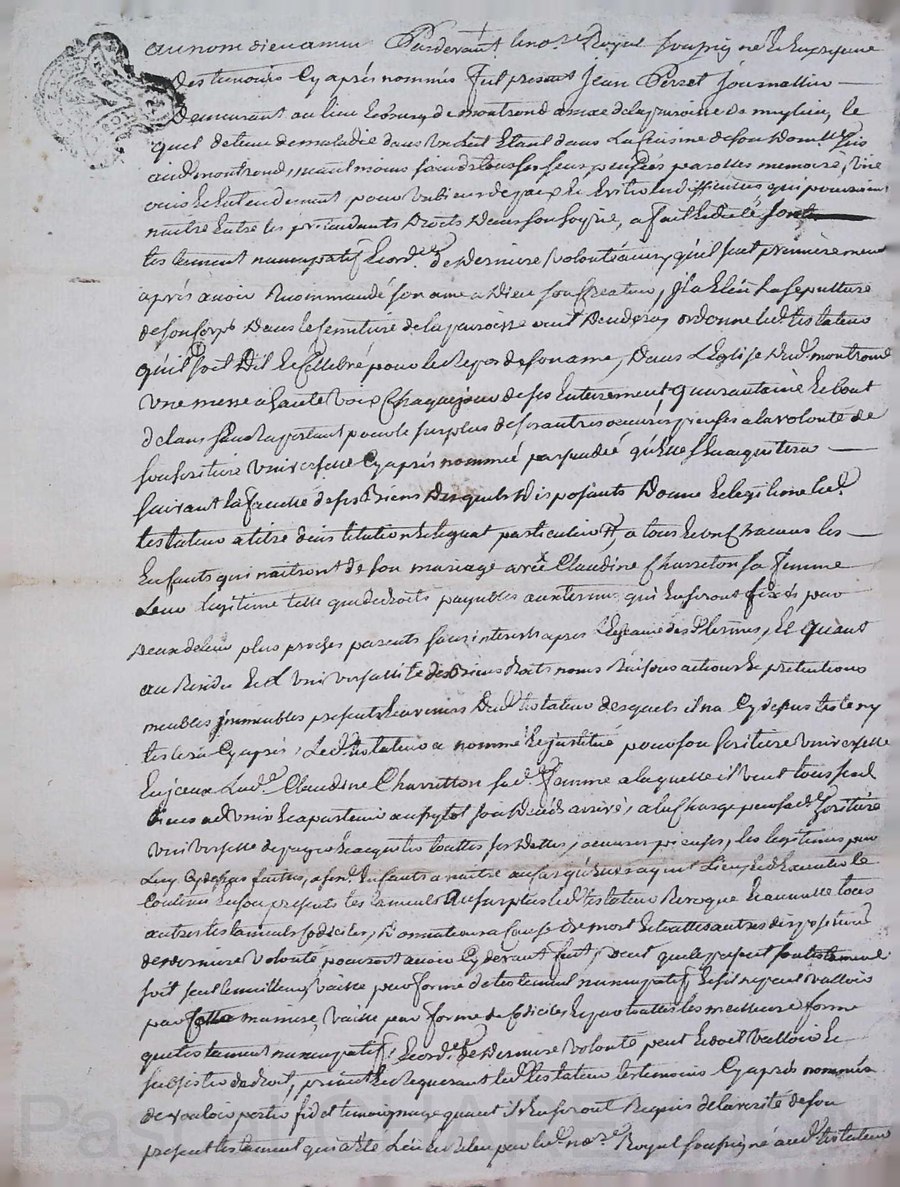 au nom dieu amen Pardevant le no.re Royal soussigné et en presence
des temoins Cy aprés nommés fut present Jean Perret journallier
demeurant au lieu et bourg de montrond annexe de la paroisse de meylieu, le
quel detenu de maladie dans un lict Etant dans La Cuisine de son Dom.lle
aud. montrond, neant moins sain de tous ses sens, pensées parolles memoire, vüe
ouïe et Entendement, pour obvier de paix et Eviter les differents qui pourroient
naitre Entre les prétendants Droits Dans son hoyrie, a fait et dicté
testament nuncupatif Et ord.ce de Derniere volonté ainsy qu'il suit premierement
après avoir Recommandé son ame a Dieu son Createur, Il a Eleu La sepulture
de son Corps Dans le Cemitiere de la paroisse ordonne led. testateur
qu'il soit Dit et Cellebré pour le Repos de son ame, Dans L'Eglise dud. montrond
Une messe a haute voix Chaque jour de ses Enterrement Quarantaine Et bout
de l'an se Raportant pour le surplus de ses autres oeuvres pieuses a la volonté de
son heritiere universelle Cy aprés nommée persuadé qu'Elle s'En acquitera
suivant la faculté de ses Biens Desquels Disposants Donne et legue led.
testateur a titre d'institution et legat particulier, a tous et un Chacuns les
Enfants qui naitront de son mariage avec Claudine Charreton sa femme
Leur legitime telle que de droits payables aux termes qui En seront fixés par
deux de leur plus proches parents sans interests aprés des termes, Et quant
au Residu Et universalité des Biens droits noms Raisons actions Et pretentions
meubles immeubles presents et avenirs dud. testateur desquels il n'a Cy dessus testé ny
testera Cy aprés, Led. testateur a nommé Et institué pour son heritiere universelle
Lad. Claudine Charretton sa d. femme a laquelle il veut tous ses
biens advenir et apartenir ausytot son Décés arrivé, a la Charge par sad. heritiere
universelle de payer et acquitter touttes ses Dettes, oeuvres pieuses, les legitimes par
Luy Cy dessus faittes, a ses d. Enfants a naitre
Contenu En son present testament Au surplus led. testateur Revoque Et annulle tous
autres testaments Codicilles, Donnations a Cause de mort Et touttes autres dispositions
de derniere volonté pouvant avoir Cy devant fait, veut que le present
soit seul le meilleur, vaille par forme de testament nuncupatif, Et s'il ne peut valloir
par maniere, vaille par forme de Codicile, Et par touttes les meilleure forme
que testament nuncupatif, Et ord.ce de Derniere volonté peut Et doit valloir Et
subsister de droit, priant Et Requerant led. testateur les temoins Cy aprés nommés
de vouloir porter fid et temoignage quant ils En seront Requis de la verité de son
present testament qui a eté Leu et Releu par led. no.re Royal soussigné aud. testateur